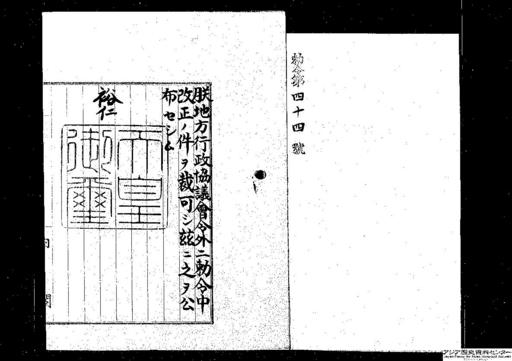 勅令第四十四號
朕地方行政協議會令外二勅令中
改正ノ件ヲ裁可シ茲ニ之ヲ公
布セシム
裕仁
天皇
御璽
内閣
アジア歴史資料センター